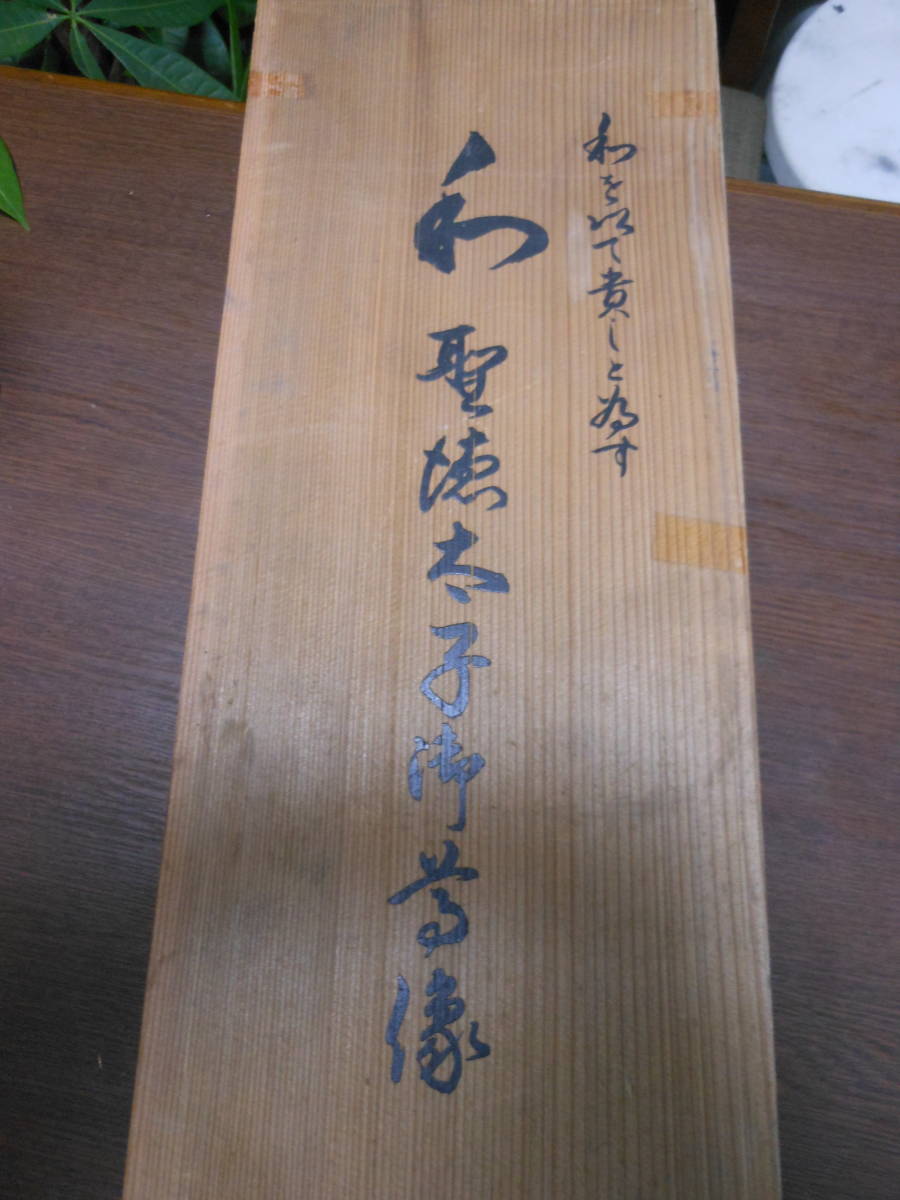 和を以て貴しと為す
和 聖徳太子御尊像